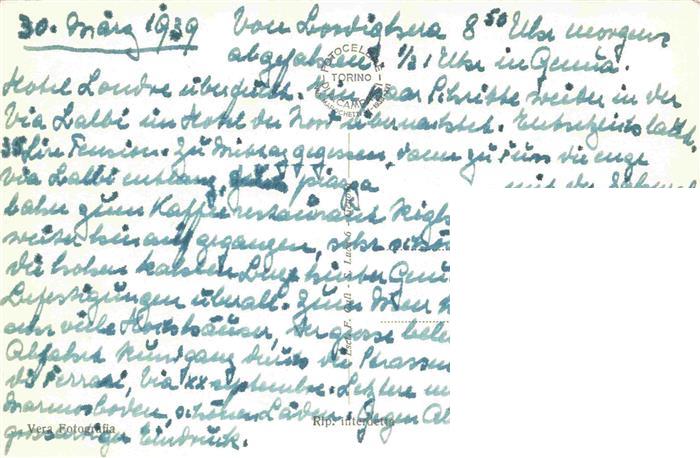 30. März 1939 Von Bordighera 8 50 Uhr morgens
abgefahren, 1/2 1 Uhr in Genua.
Hotel Londre überfüllt. Ein paar Schritte weiter in der
Via Balbi im Hotel du Nord übernachtet.
35 Lire Pension. Zu Mittag gegessen, dann zu Fuss die enge
Via Balbi entlang, piazza mit der
bahn zum Kaffeerestaurant Righi
weiter hinauf gegangen, sehr
die hohen kahlen Berge hinter
Befestigungen überall. Zum Meer
auf viele Hochhäuser, der grosse
Abfahrt Rundgang durch die
de Ferrari, Via XX septembre. Letztere
Marmorboden, schöne Läden. Gegen
grossartiger Eindruck.
FOTOCELERE
TORINO
DI CAMPASSI
Vera Fotografia
Rip. interdetta